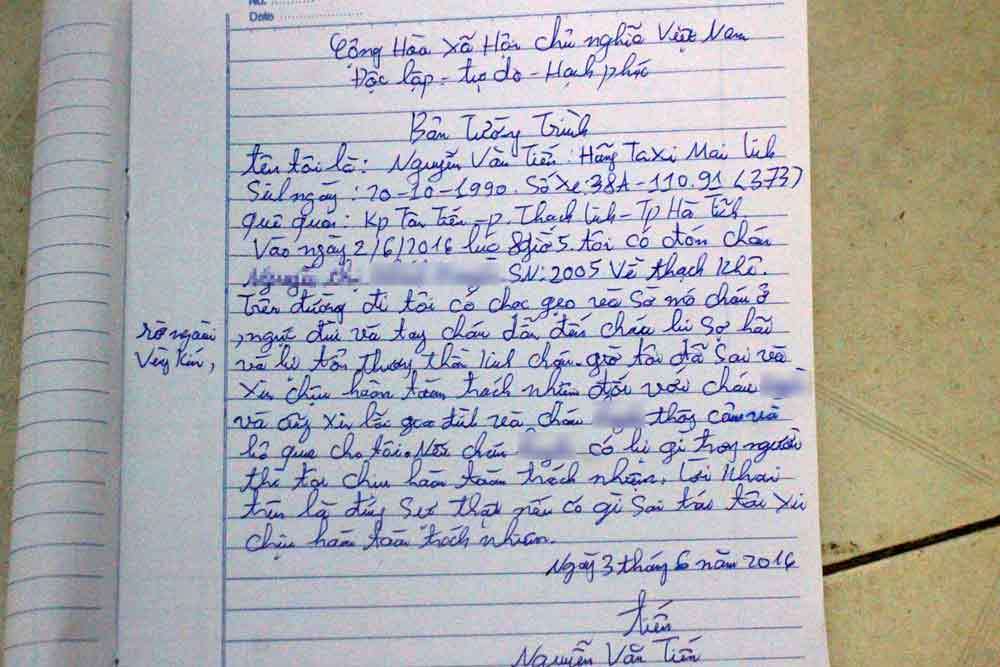 No. :
Date
Cộng Hòa Xã Hội chủ nghĩa Việt Nam
Độc lập - tự do - Hạnh phúc
Bản Tường Trình
tên tôi là: Nguyễn Văn Tiến: Hãng Taxi Mai linh
Sinh ngày: 20-10-1990. Số xe: 38A-110.91 (373)
quê quán: Kp Tân Tiến - p. Thạch linh - Tp Hà Tĩnh
Vào ngày 2/6/2016 lúc 8giờ5. tôi có đón cháu
SN: 2005 Về thạch Khê.
trên đường đi tôi có chọc gẹo và Sờ mó cháu ở
ngực đùi và tay cháu dẫn đến cháu bị Sợ hãi
và bị tổn thương thần kinh cháu. giờ tôi đã Sai và
xin chịu hoàn toàn trách nhiệm đối với cháu
và cũng xin lỗi gia đình và cháu thông cảm và
bỏ qua cho tôi. Nếu cháu có bị gì trong người
thì tôi chịu hoàn toàn trách nhiệm. Lời Khai
trên là đúng Sự thật nếu có gì Sai trái tôi xin
chịu hoàn toàn trách nhiệm.
Ngày 3 tháng 6 năm 2016
tiến
Nguyễn Văn Tiến
rờ ngoài
Vùng Kín,